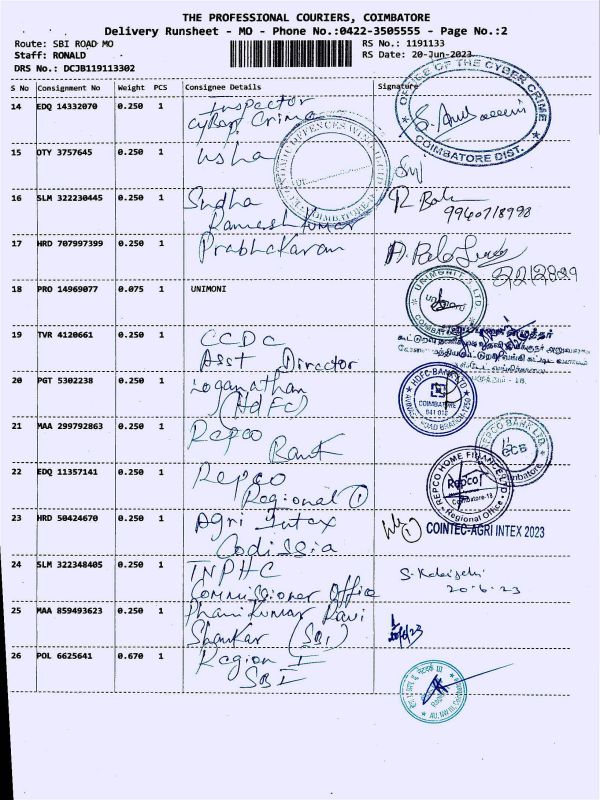 THE PROFESSIONAL COURIERS, COIMBATORE
Delivery Runsheet - MO - Phone No.:0422-3505555 - Page No.:2
Route: SBI ROAD MO RS No.: 1191133
Staff: RONALD RS Date: 20-Jun-2023
DRS No.: DCJB119113302
S No Consignment No Weight PCS Consignee Details Signature
14 EDQ 14332070 0.250 1 Inspector
Cyber Crime
OFFICE OF THE CYBER CRIME
COIMBATORE DIST.
15 OTY 3757645 0.250 1 Usha
16 SLM 322230445 0.250 1 Sudha
Ramesh Kumar
9940718998
17 HRD 707997399 0.250 1 Prabhakaran
18 PRO 14969077 0.075 1 UNIMONI
19 TVR 4120661 0.250 1 CCDC
Asst Director
20 PGT 5302238 0.250 1 Loganathan
(HDFC)
HDFC BANK LTD
COIMBATORE
641 018
21 MAA 299792863 0.250 1 Repco
Bank
REPCO BANK LTD.
22 EDQ 11357141 0.250 1 Repco
Regional ①
REPCO HOME FINANCE LTD
Repco
Coimbatore-18
Regional Office
23 HRD 50424670 0.250 1 Agri Intex
Codissia
COINTEC-AGRI INTEX 2023
24 SLM 322348405 0.250 1 TNPHC
Commissioner Office
20.6.23
25 MAA 859493623 0.250 1 Phani Kumar Ravi
Shankar (SBI)
20/6/23
26 POL 6625641 0.670 1 Region I
SBI